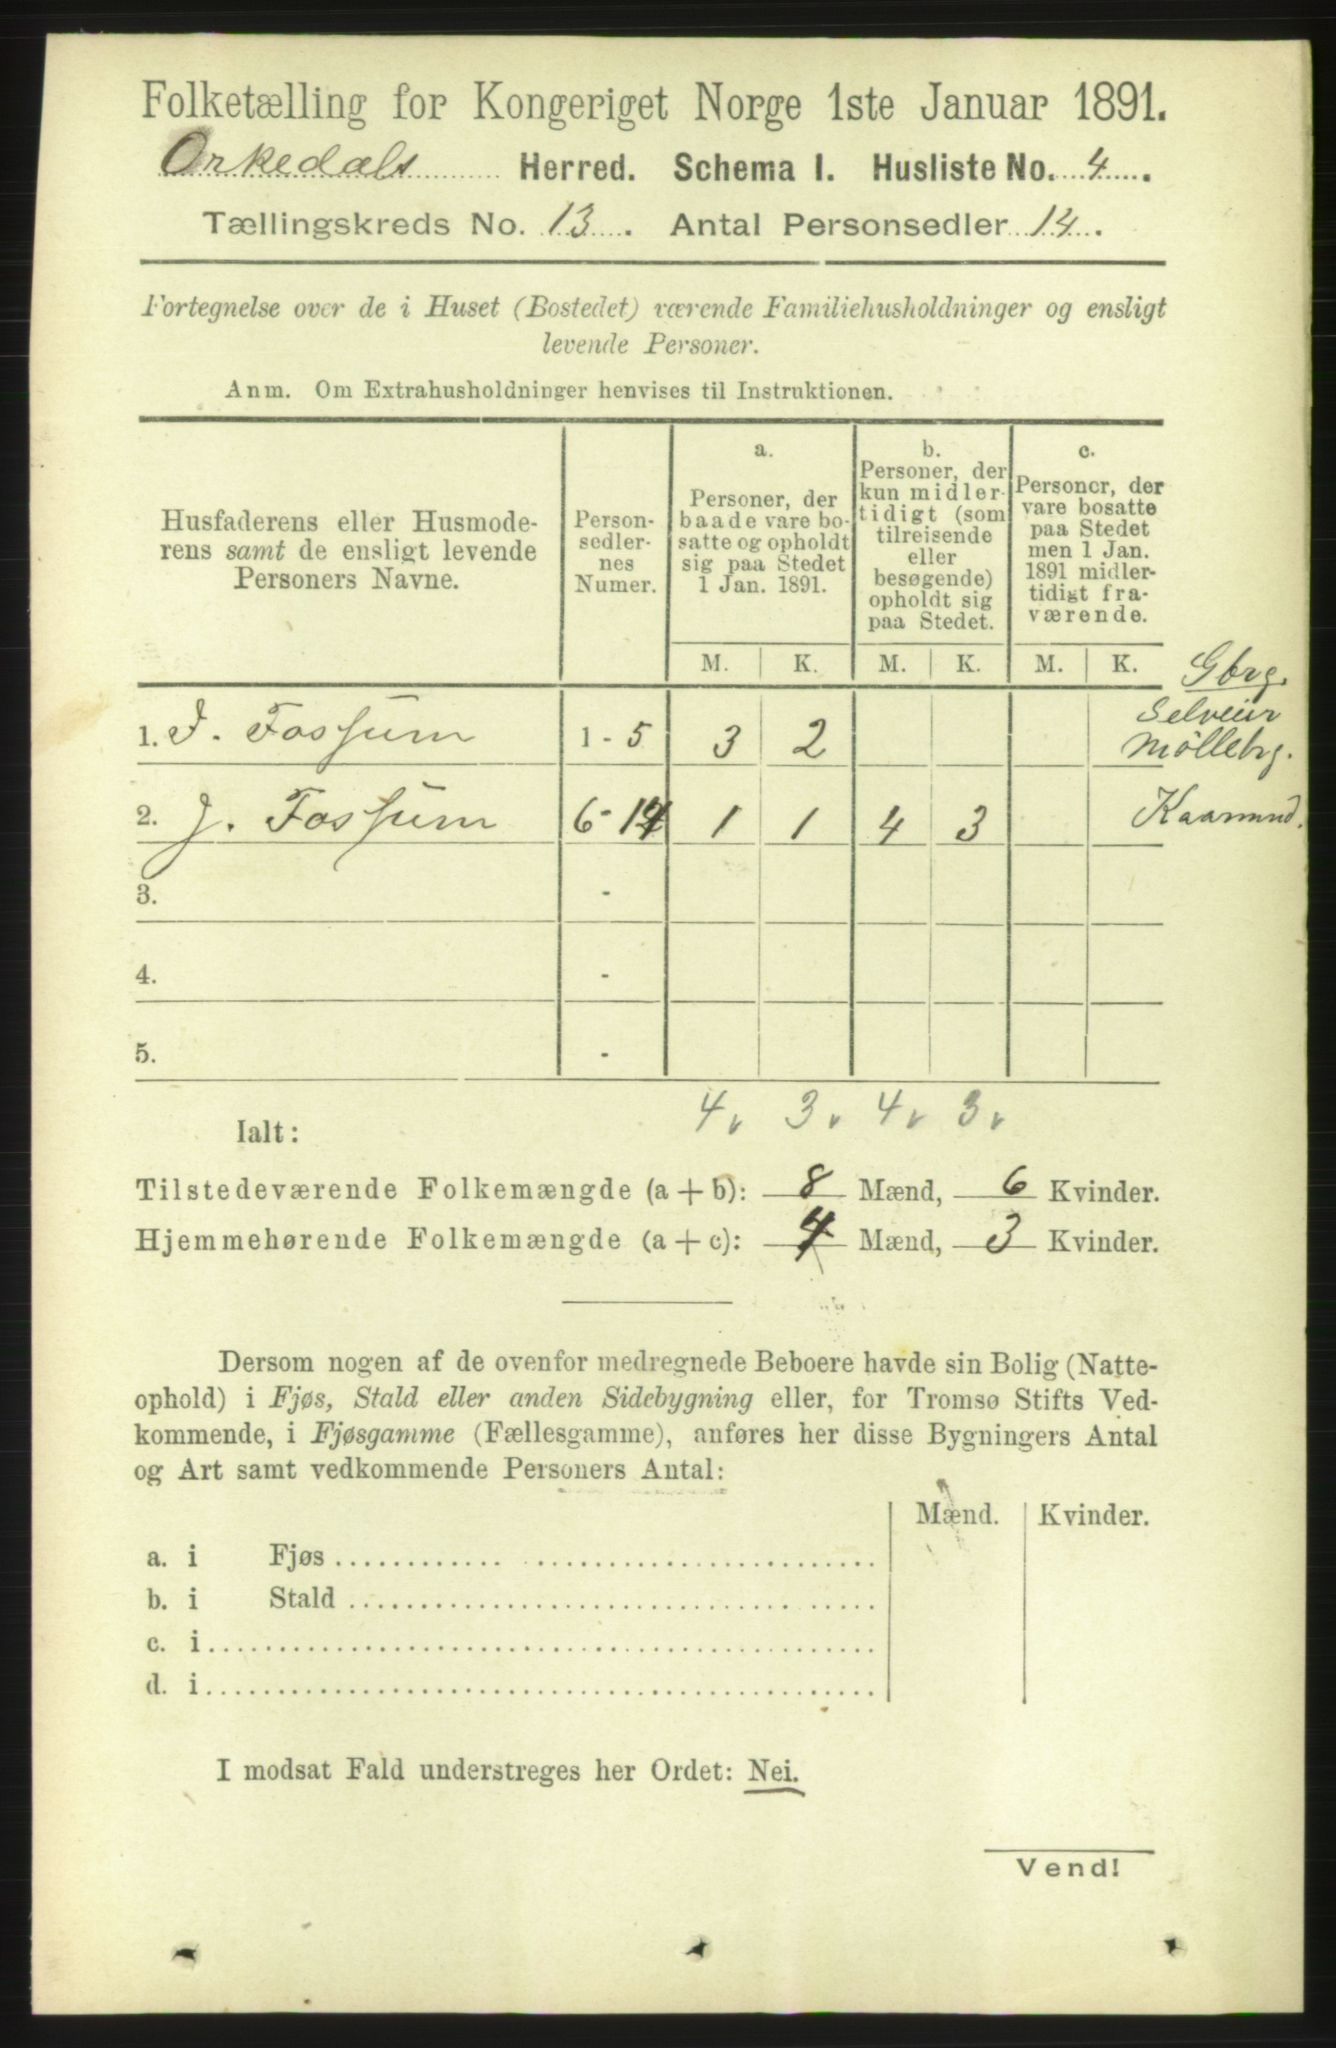 Folketælling for Kongeriget Norge 1ste Januar 1891.
Orkedals Herred. Schema I. Husliste No. 4.
Tællingskreds No. 13. Antal Personsedler 14.
Fortegnelse over de i Huset (Bostedet) værende Familiehusholdninger og ensligt
levende Personer.
Anm. Om Extrahusholdninger henvises til Instruktionen.
Husfaderens eller Husmode-
rens samt de ensligt levende
Personers Navne.
Person-
sedler-
nes
Numer.
a.
Personer, der
baade vare bo-
satte og opholdt
sig paa Stedet
1 Jan. 1891.
b.
Personer, der
kun midler-
tidigt (som
tilreisende
eller
besøgende)
opholdt sig
paa Stedet.
c.
Personer, der
vare bosatte
paa Stedet
men 1 Jan.
1891 midler-
tidigt fra-
værende.
M. K. M. K. M. K.
Gbrg.
Selveier
1. I. Fossum 1 - 5 3 2 Mölleby.
2. J. Fossum 6 - 14 1 1 4 3
3. -
4. -
5. -
Ialt: 4 3 4 3
Tilstedeværende Folkemængde (a + b): 8 Mænd, 6 Kvinder.
Hjemmehørende Folkemængde (a + c): 4 Mænd, 3 Kvinder.
Dersom nogen af de ovenfor medregnede Beboere havde sin Bolig (Natte-
ophold) i Fjøs, Stald eller anden Sidebygning eller, for Tromsø Stifts Ved-
kommende, i Fjøsgamme (Fællesgamme), anføres her disse Bygningers Antal
og Art samt vedkommende Personers Antal:
Mænd. Kvinder.
a. i Fjøs
b. i Stald
c. i
d. i
I modsat Fald understreges her Ordet: Nei.
Vend!